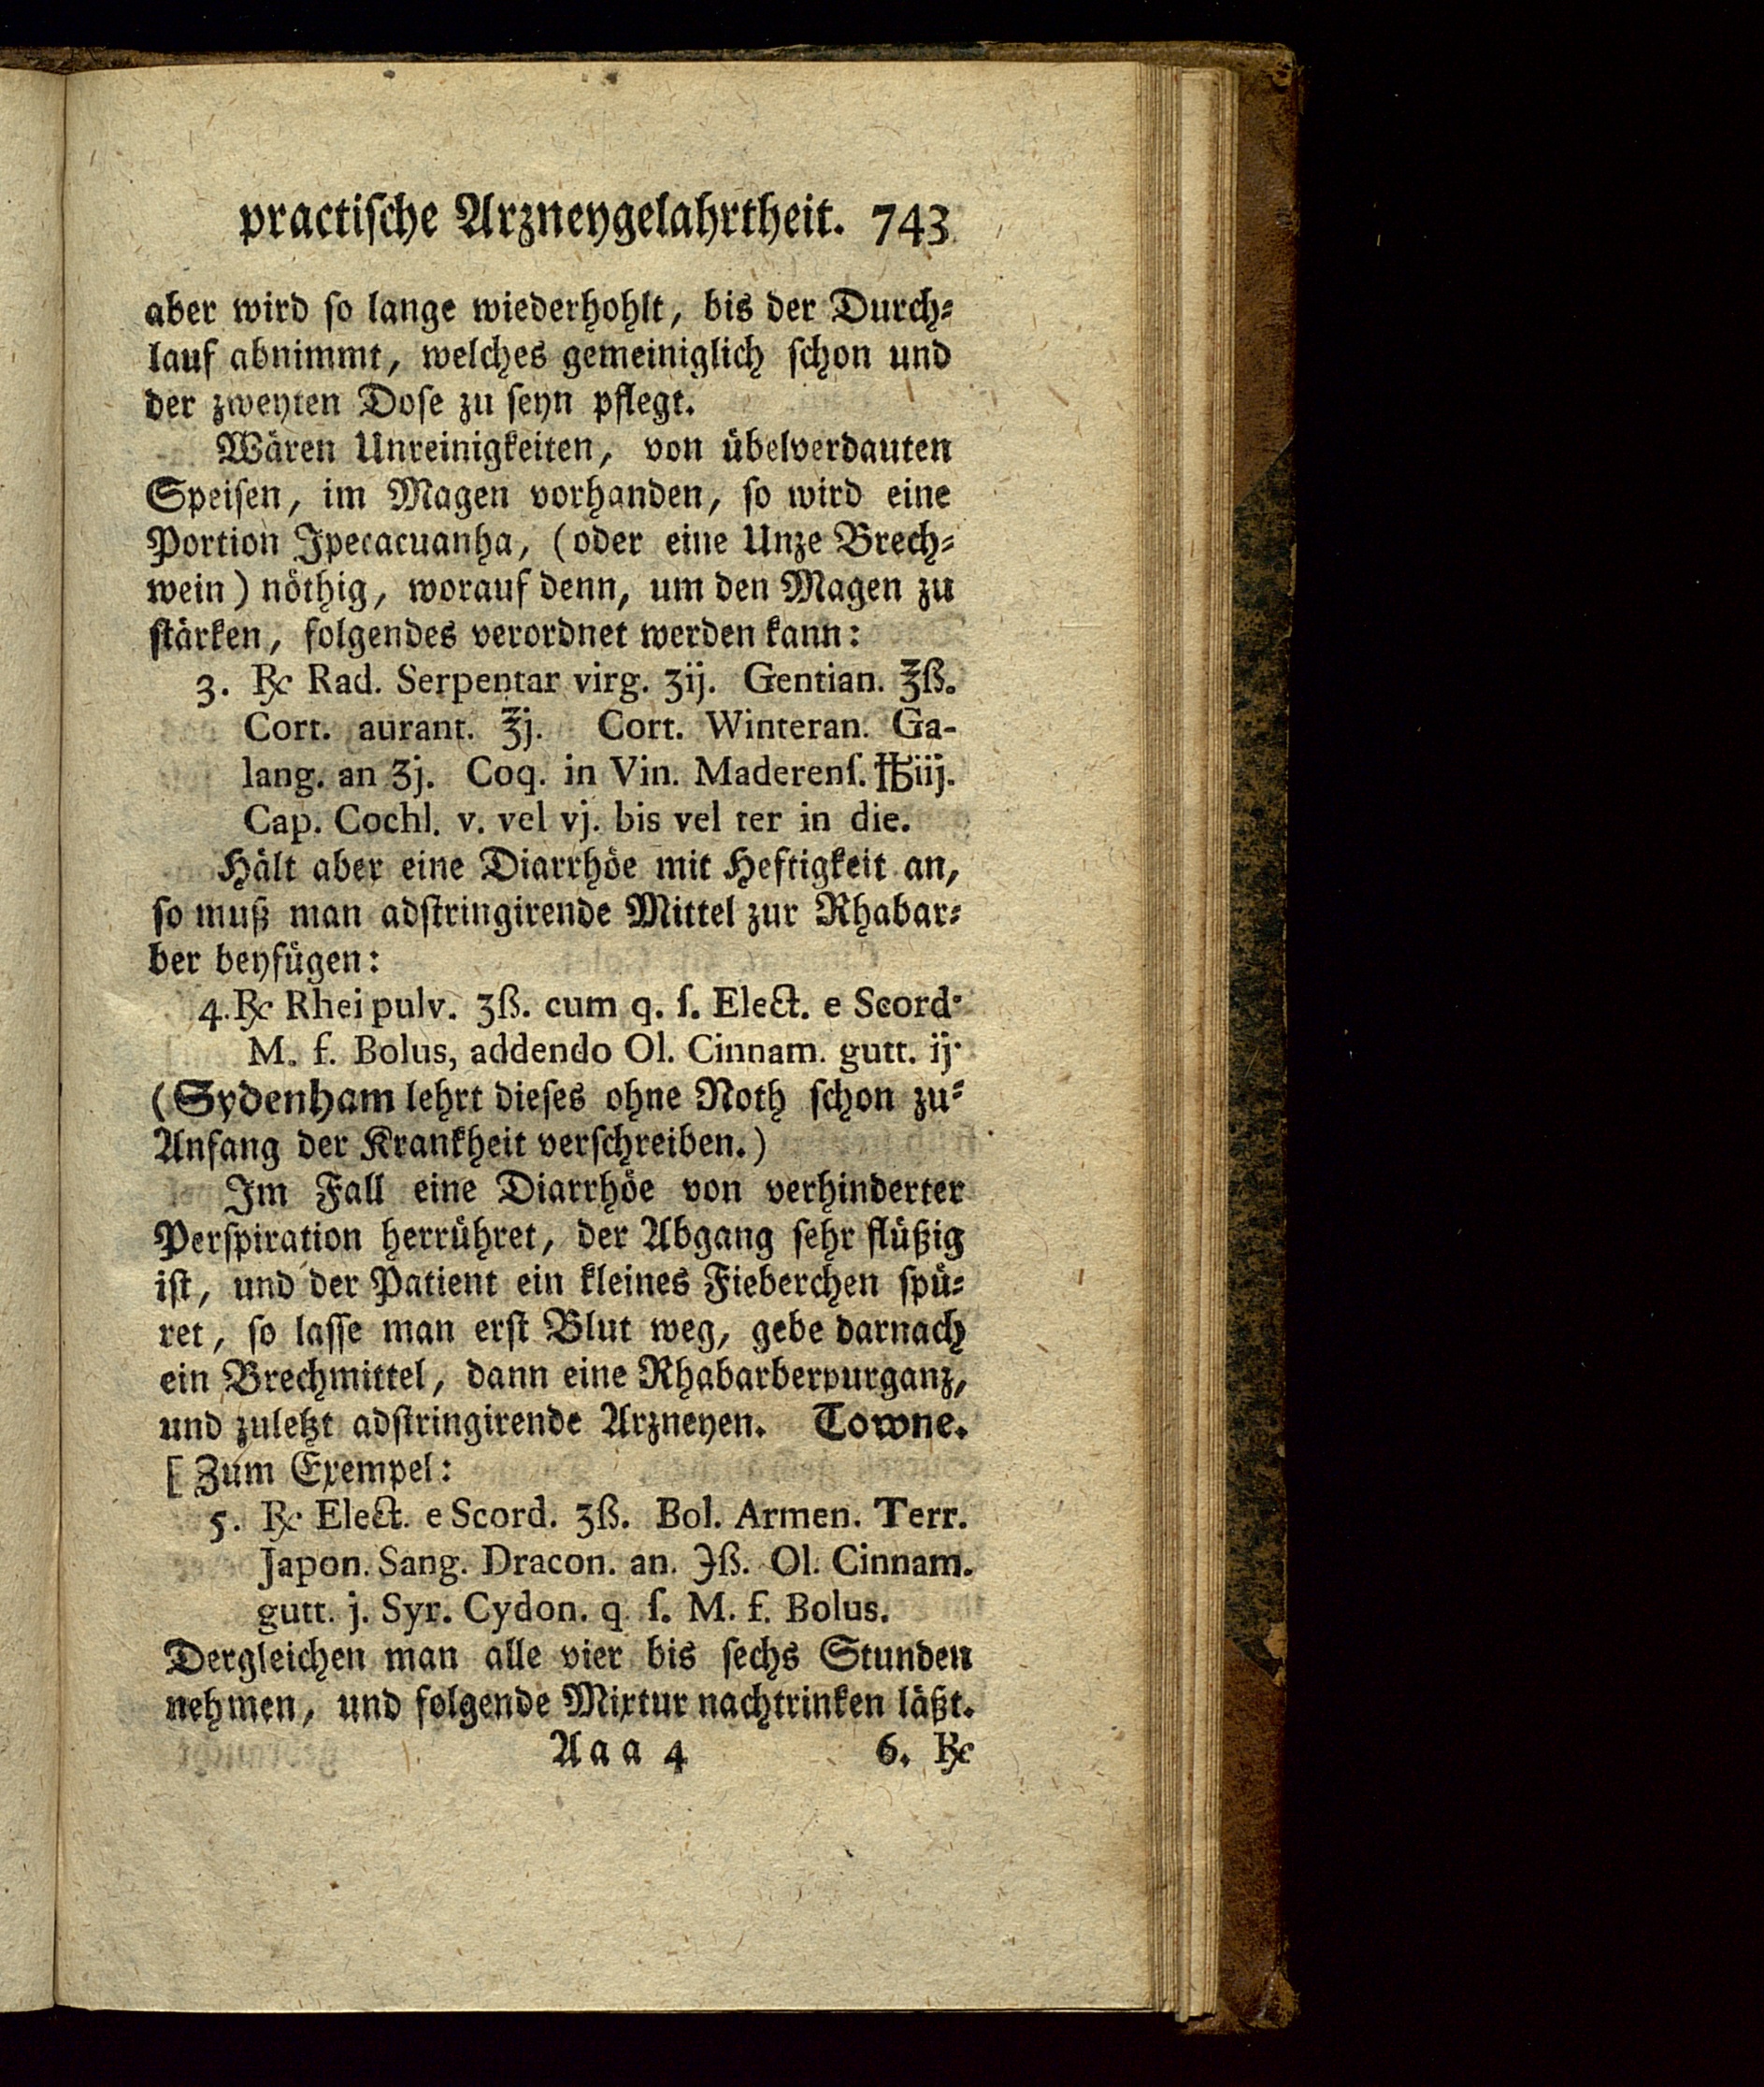 practische Arzneygelahrtheit. 743
aber wird so lange wiederhohlt, bis der Durch⸗
lauf abnimmt, welches gemeiniglich schon und
der zweyten Dose zu seyn pflegt.
Wären Unreinigkeiten, von übelverdauten
Speisen, im Magen vorhanden, so wird eine
Portion Ipecacuanha, (oder eine Unze Brech⸗
wein) nöthig, worauf denn, um den Magen zu
stärken, folgendes verordnet werden kann:
3. ℞ Rad. Serpentar virg. ʒij. Gentian. ℥ß.
Cort. aurant. ℥j. Cort. Winteran. Ga-
lang. an ʒj. Coq. in Vin. Maderenſ. ℔iij.
Cap. Cochl. v. vel vj. bis vel ter in die.
Hält aber eine Diarrhöe mit Heftigkeit an,
so muß man adstringirende Mittel zur Rhabar⸗
ber beyfügen:
4. ℞ Rhei pulv. ʒß. cum q. ſ. Elect. e Scord·
M. f. Bolus, addendo Ol. Cinnam. gutt. ij·
(Sydenham lehrt dieses ohne Noth schon zu⸗
Anfang der Krankheit verschreiben.)
Im Fall eine Diarrhöe von verhinderter
Perspiration herrühret, der Abgang sehr flüßig
ist, und der Patient ein kleines Fieberchen spü⸗
ret, so lasse man erst Blut weg, gebe darnach
ein Brechmittel, dann eine Rhabarberpurganz,
und zuletzt adstringirende Arzneyen. Towne.
[Zum Exempel:
5. ℞ Elect. e Scord. ʒß. Bol. Armen. Terr.
Japon. Sang. Dracon. an. ℈ß. Ol. Cinnam.
gutt. j. Syr. Cydon. q. ſ. M. f. Bolus.
Dergleichen man alle vier bis sechs Stunden
nehmen, und folgende Mixtur nachtrinken läßt.
Aaa 4 6. ℞